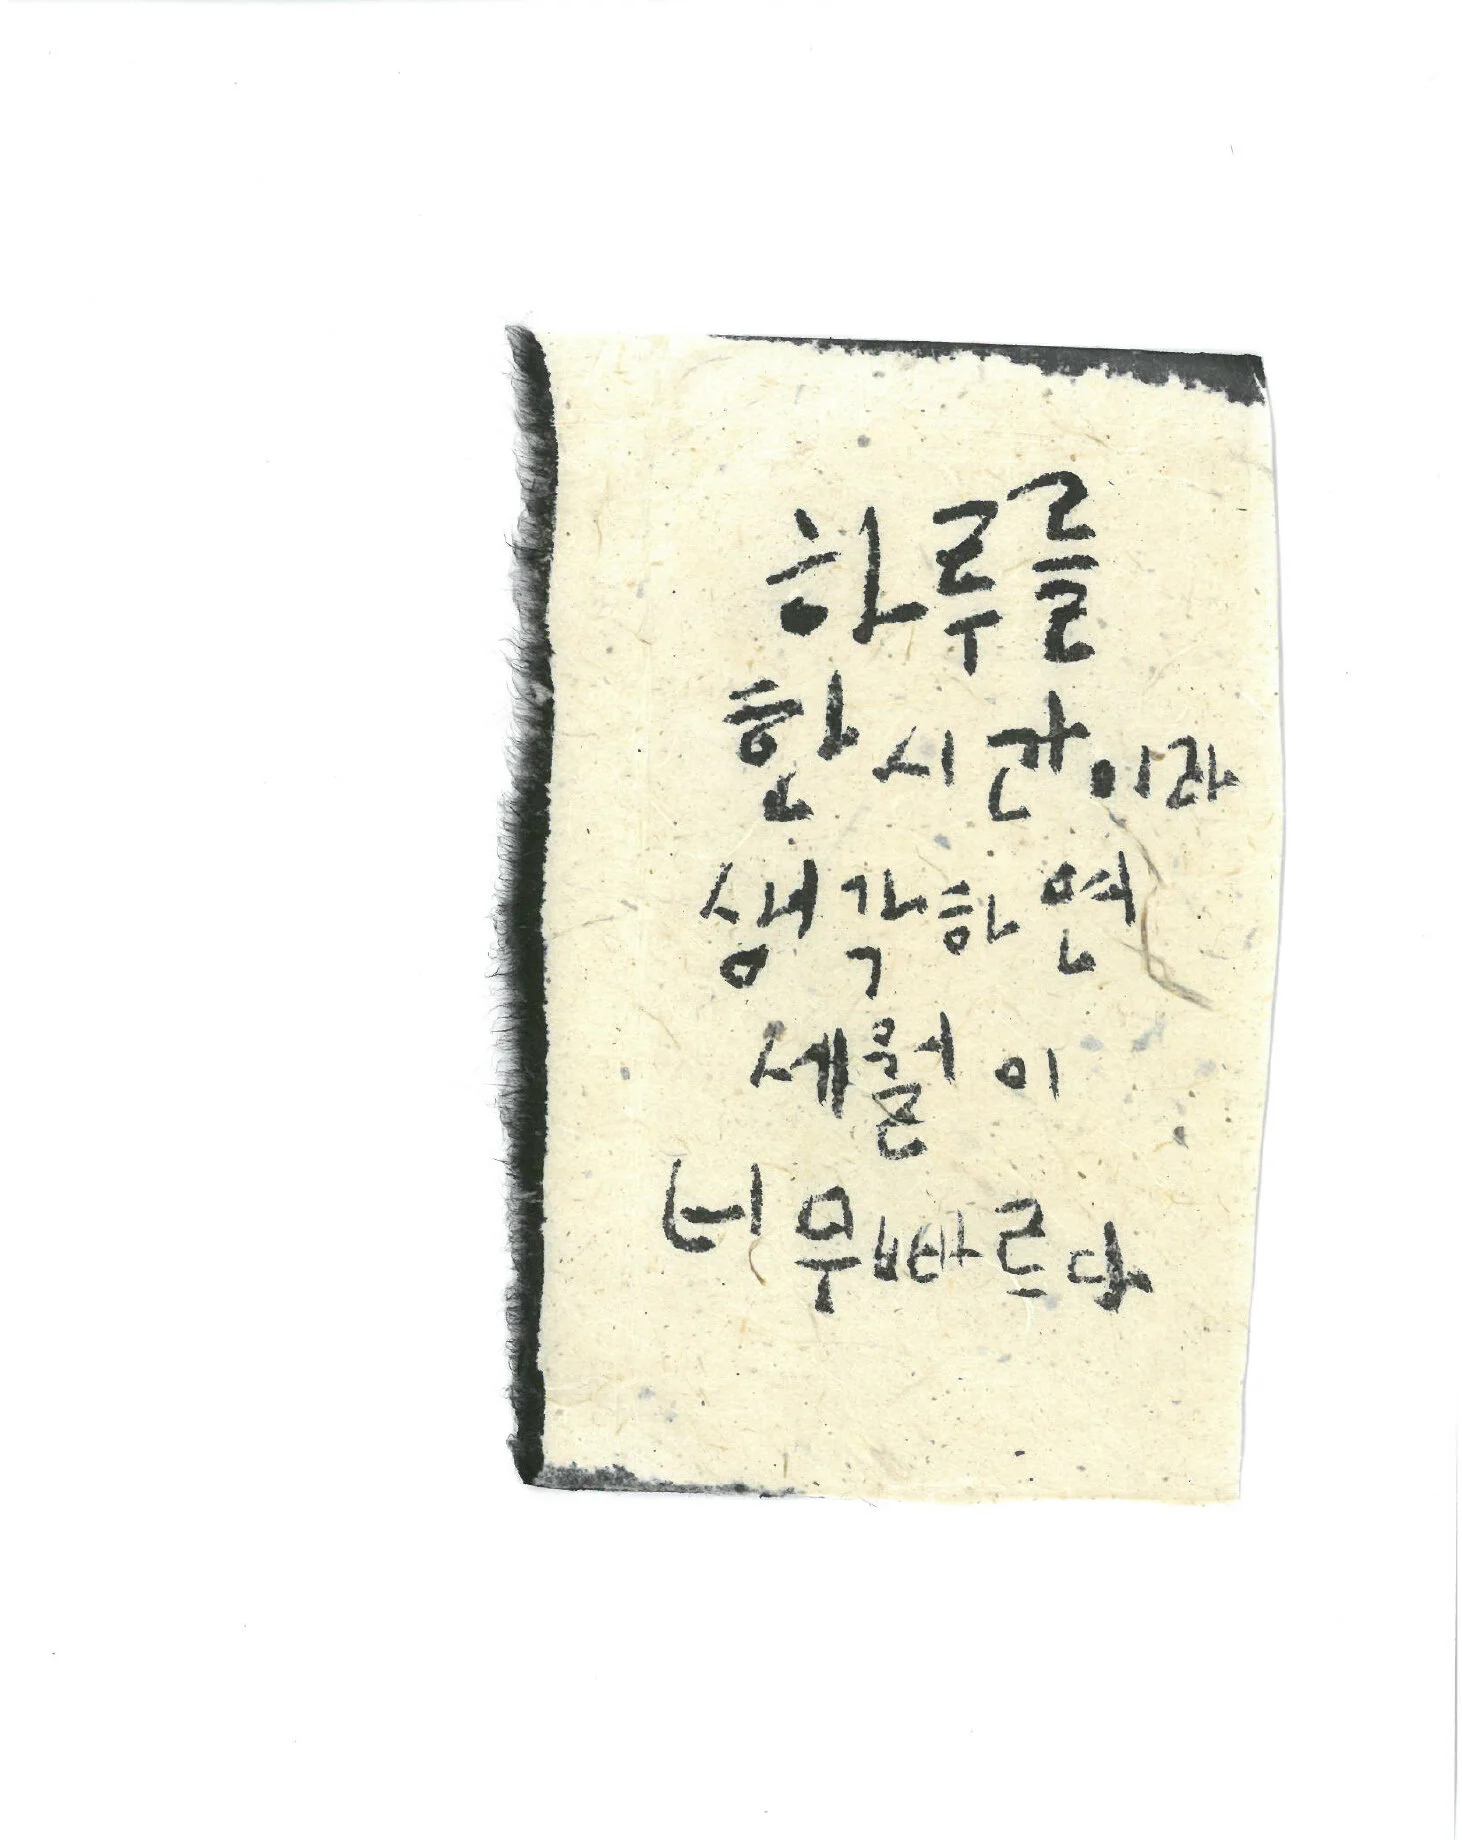 하루를
한 시간이라
생각하면
세월이
너무빠르다